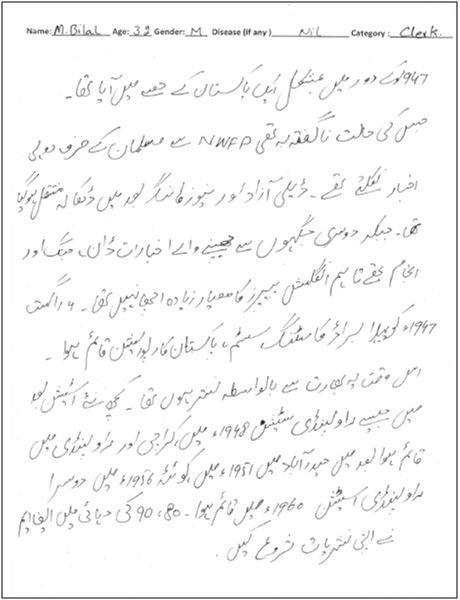 Name: M. Bilal Age: 32 Gender: M Disease (if any) Nil Category: Clerk.
1947ء کے دور میں بمشکل ایک پاکستان کے حصے میں آیا تھا۔
جس کی حالت ناگفتہ بہ تھی NWFP سے مسلمان کے صرف دو ہی
اخبار نکلتے تھے۔ ڈیلی آزاد اور نیوز بعد میں ڈھاکہ منتقل ہو گیا
تھا۔ جبکہ دوسری جگہوں سے چھپنے والے اخبارات ڈان، جنگ اور
انجام تھے تاہم انگلش پیپرز کا معیار زیادہ اچھا نہیں تھا۔ اگست
1947ء کو پہلا براڈ کاسٹنگ سسٹم، پاکستان کارپوریشن قائم ہوا۔
اس وقت یہ بھارت سے بالواسطہ نشر ہوں تھا۔ کچھ نئے اسٹیشن بعد
میں جیسے راولپنڈی سٹیشن 1948ء میں، کراچی اور راولپنڈی میں
قائم ہوا بعد میں حیدرآباد میں 1951ء میں، کوئٹہ 1956ء میں دوسرا
راولپنڈی اسٹیشن 1960ء میں قائم ہوا۔ 80، 90 کی دہائی میں ایف ایم
نے اپنی نشریات شروع کیں۔